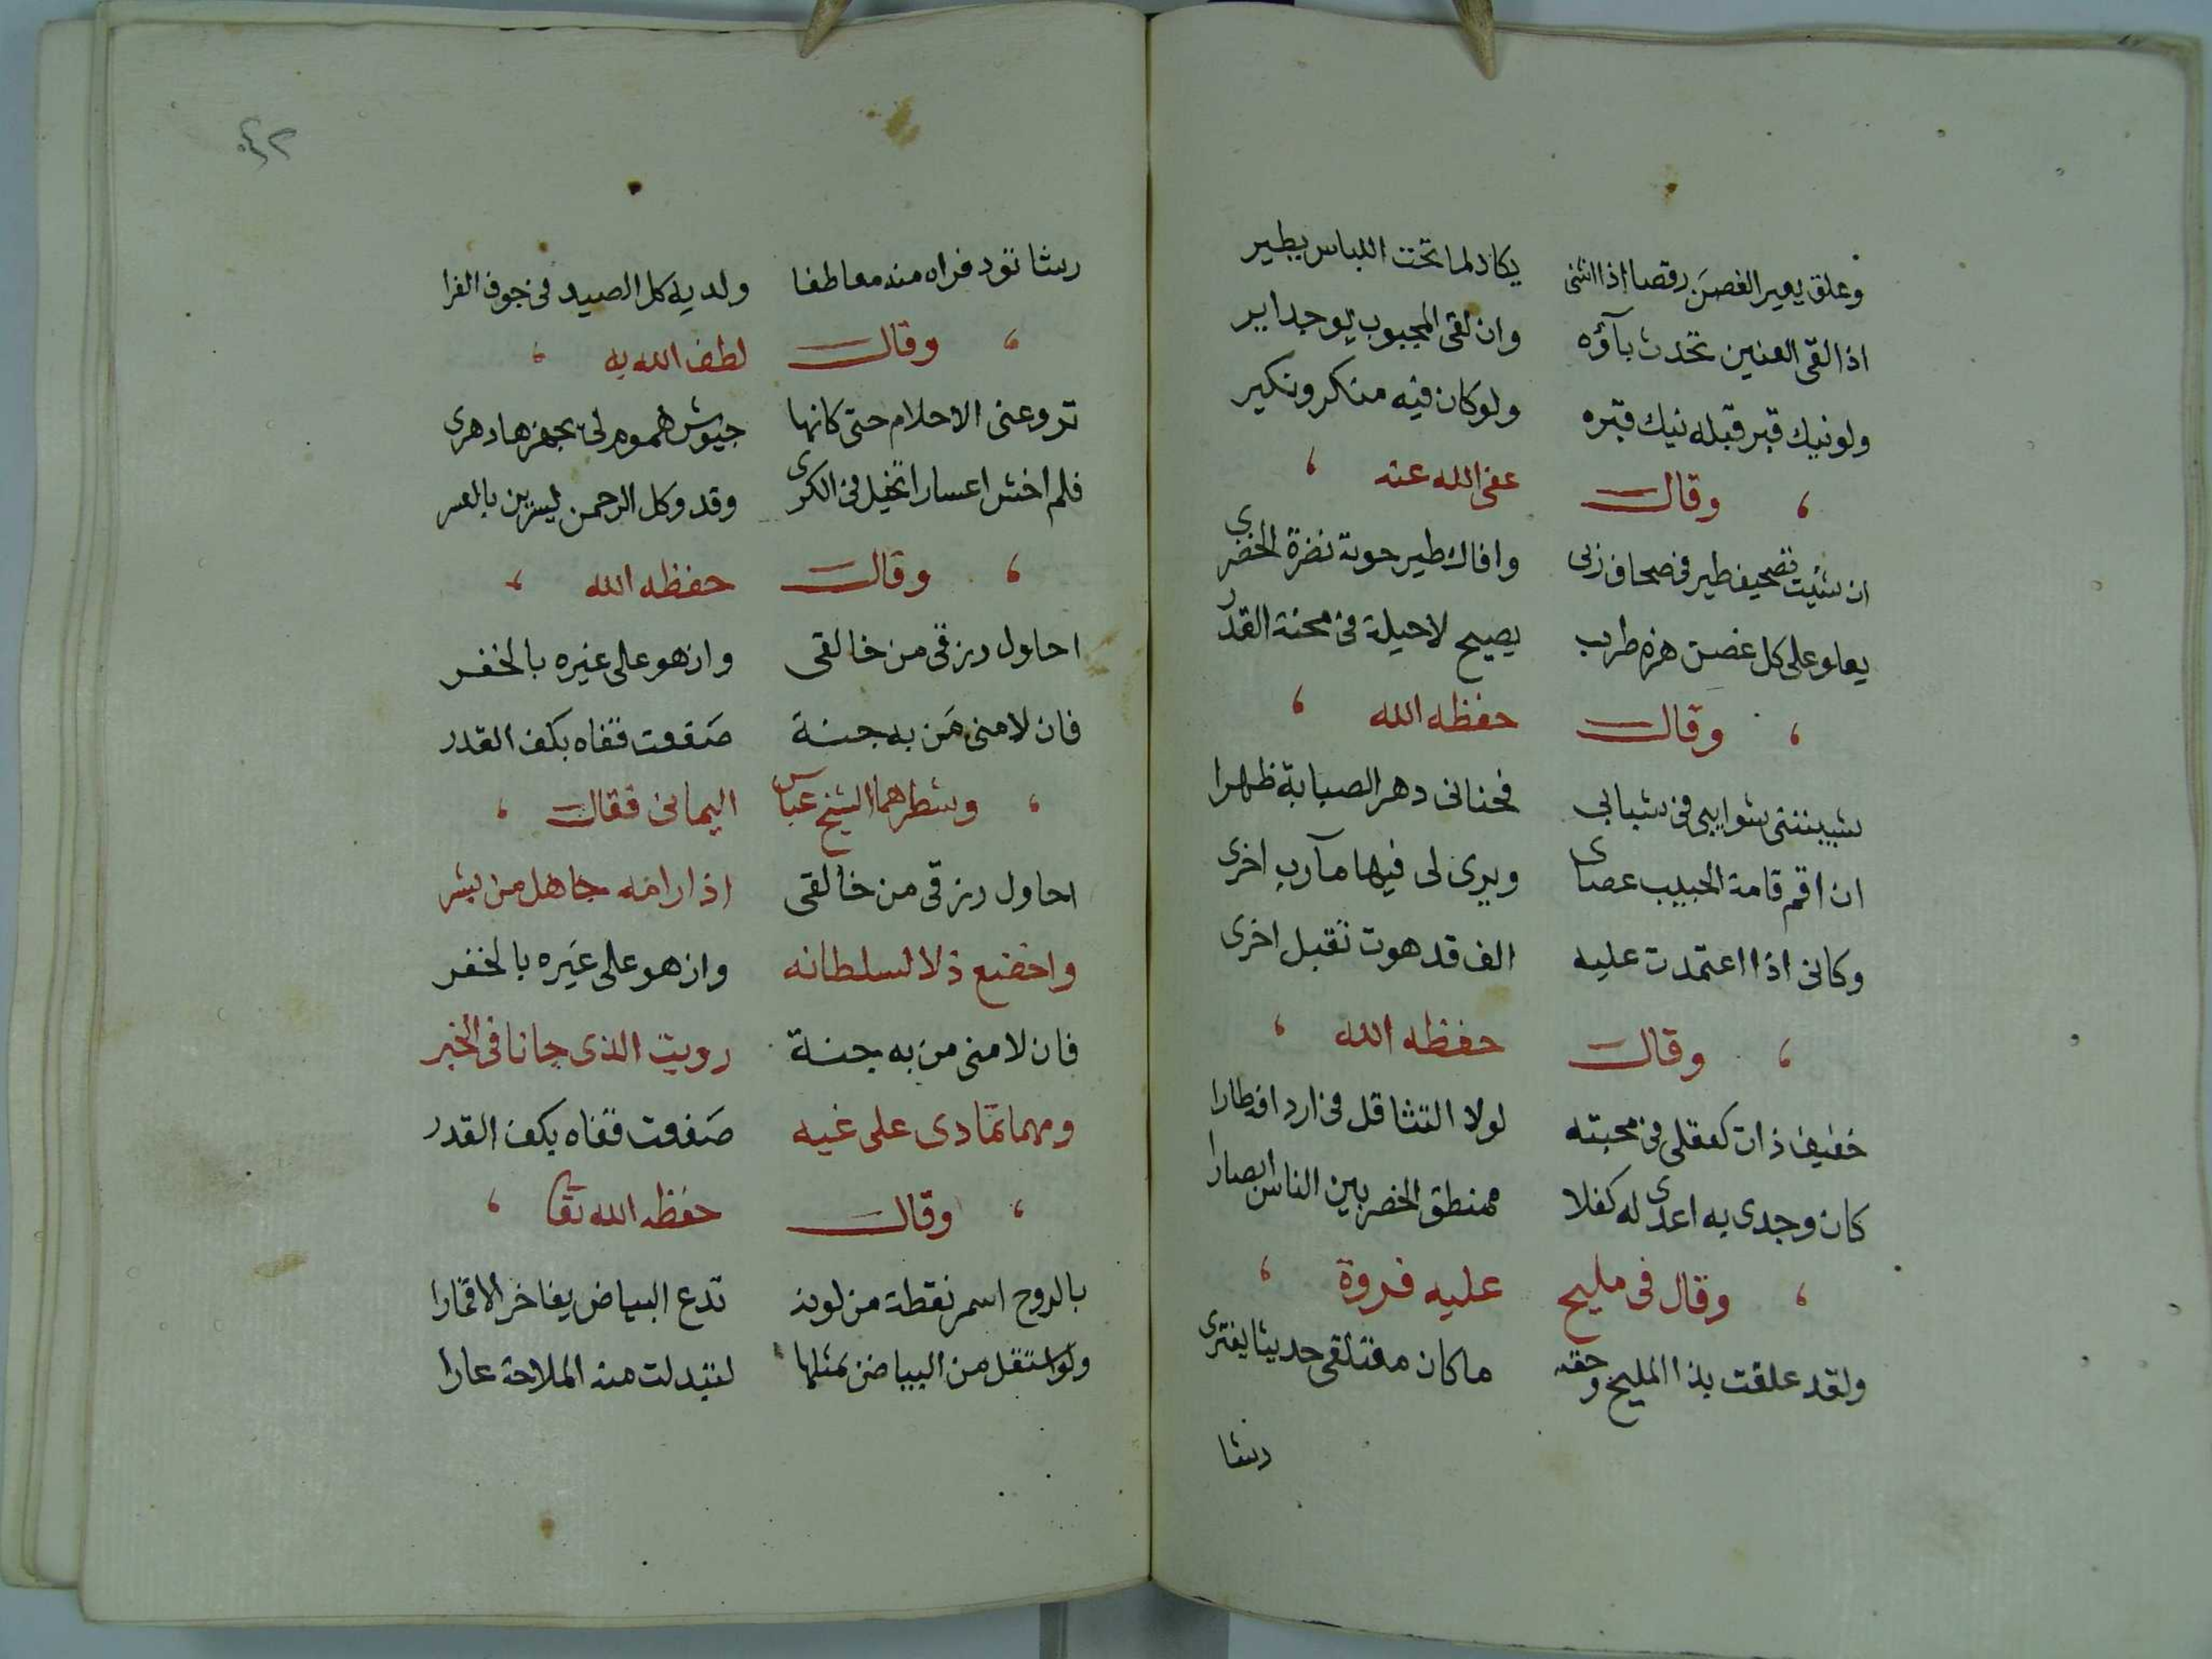 وعلق يعير الغصن رقصا اذا انثنى يكاد لما تحت اللباس يطير
اذا لقى العنين تحدث بآؤه وان لقى المحبوب يوجد اير
ولو نيك قبر قبله نيك قبره ولو كان فيه منكر ونكير
وقال عفى الله عنه
ان شئت تصحيف طير في صحاف زبى وافاك طير حوته نضرة الخضرى
يعلو على كل غصن هزه طرب يصيح لا حيلة في محنة القدر
وقال حفظه الله
شيبتنى شوايبى في شبابى فحنانى دهر الصبابة ظهرا
ان اقم قامة الحبيب عصاى ويرى لى فيها مآرب اخرى
وكانى اذا اعتمدت عليه الف قد هوت تقبل اخرى
وقال حفظه الله
خفيف ذات كعقلى في محبته لولا التثاقل في ارد افه طارا
كان وجدى به اعدى له كفلا ممنطق الخصر بين الناس ابصارا
وقال في مليح عليه فروة
ولقد علقت بذا المليح وحقه ما كان مفتلقى حديثا يفترى
رشا
٤٢
رشا تود فراه منه معاطفا ولديه كل الصيد في جوف الفرا
وقال لطف الله به
تروعنى الاحلام حتى كانها جيوش هموم لى يجهزها دهرى
فلم اخش اعسارا تخيل في الكرى وقد وكل الرحمن يسرين بالعسر
وقال حفظه الله
احاول رزقى من خالقى وازهو على غيره بالخفر
فان لامنى من به جنة صفعت قفاه بكف القدر
وشطرهما الشيخ عباس اليمانى فقال
احاول رزقى من خالقى اذا رامه جاهل من بشر
واخضع ذلا لسلطانه وازهو على غيره بالخفر
فان لامنى من به جنة رويت الذى جانا في الخبر
ومهما تمادى على غيه صفعت قفاه بكف القدر
وقال حفظه الله تعا
بالروح اسمر نقطة من لونه تدع البياض يفاخر الاقمارا
ولو استقل من البياض بمثلها لتبدلت منه الملاحة عارا